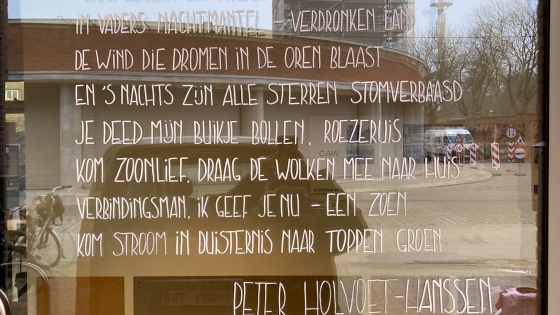 IN VADERS NACHTMANTEL – VERDRONKEN
DE WIND DIE DROMEN IN DE OREN BLAAST
EN 'S NACHTS ZIJN ALLE STERREN STOMVERBAASD
JE DEED MIJN BUIKJE BOLLEN, ROEZERUIS
KOM ZOONLIEF, DRAAG DE WOLKEN MEE NAAR HUIS
VERBINDINGSMAN, IK GEEF JE NU – EEN ZOEN
KOM STROOM IN DUISTERNIS NAAR TOPPEN GROEN
PETER HOLVOET-HANSSEN